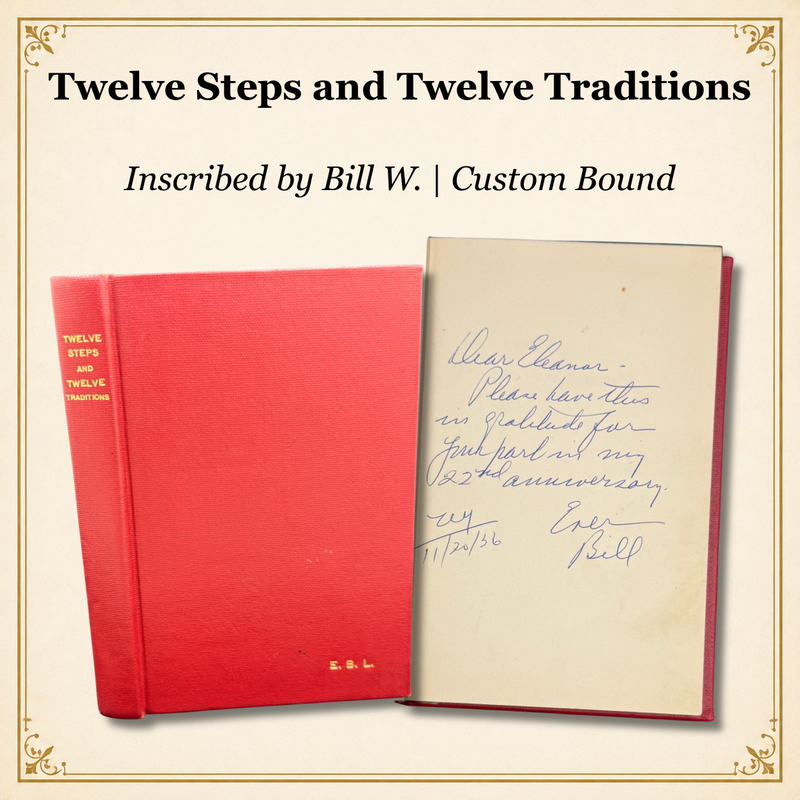 Twelve Steps and Twelve Traditions
Inscribed by Bill W. | Custom Bound
TWELVE
STEPS
AND
TWELVE
TRADITIONS
E. S. L.
Dear Eleanor -
Please have this
in gratitude for
your part in my
22nd anniversary.
Ever
Bill
NY
11/20/56